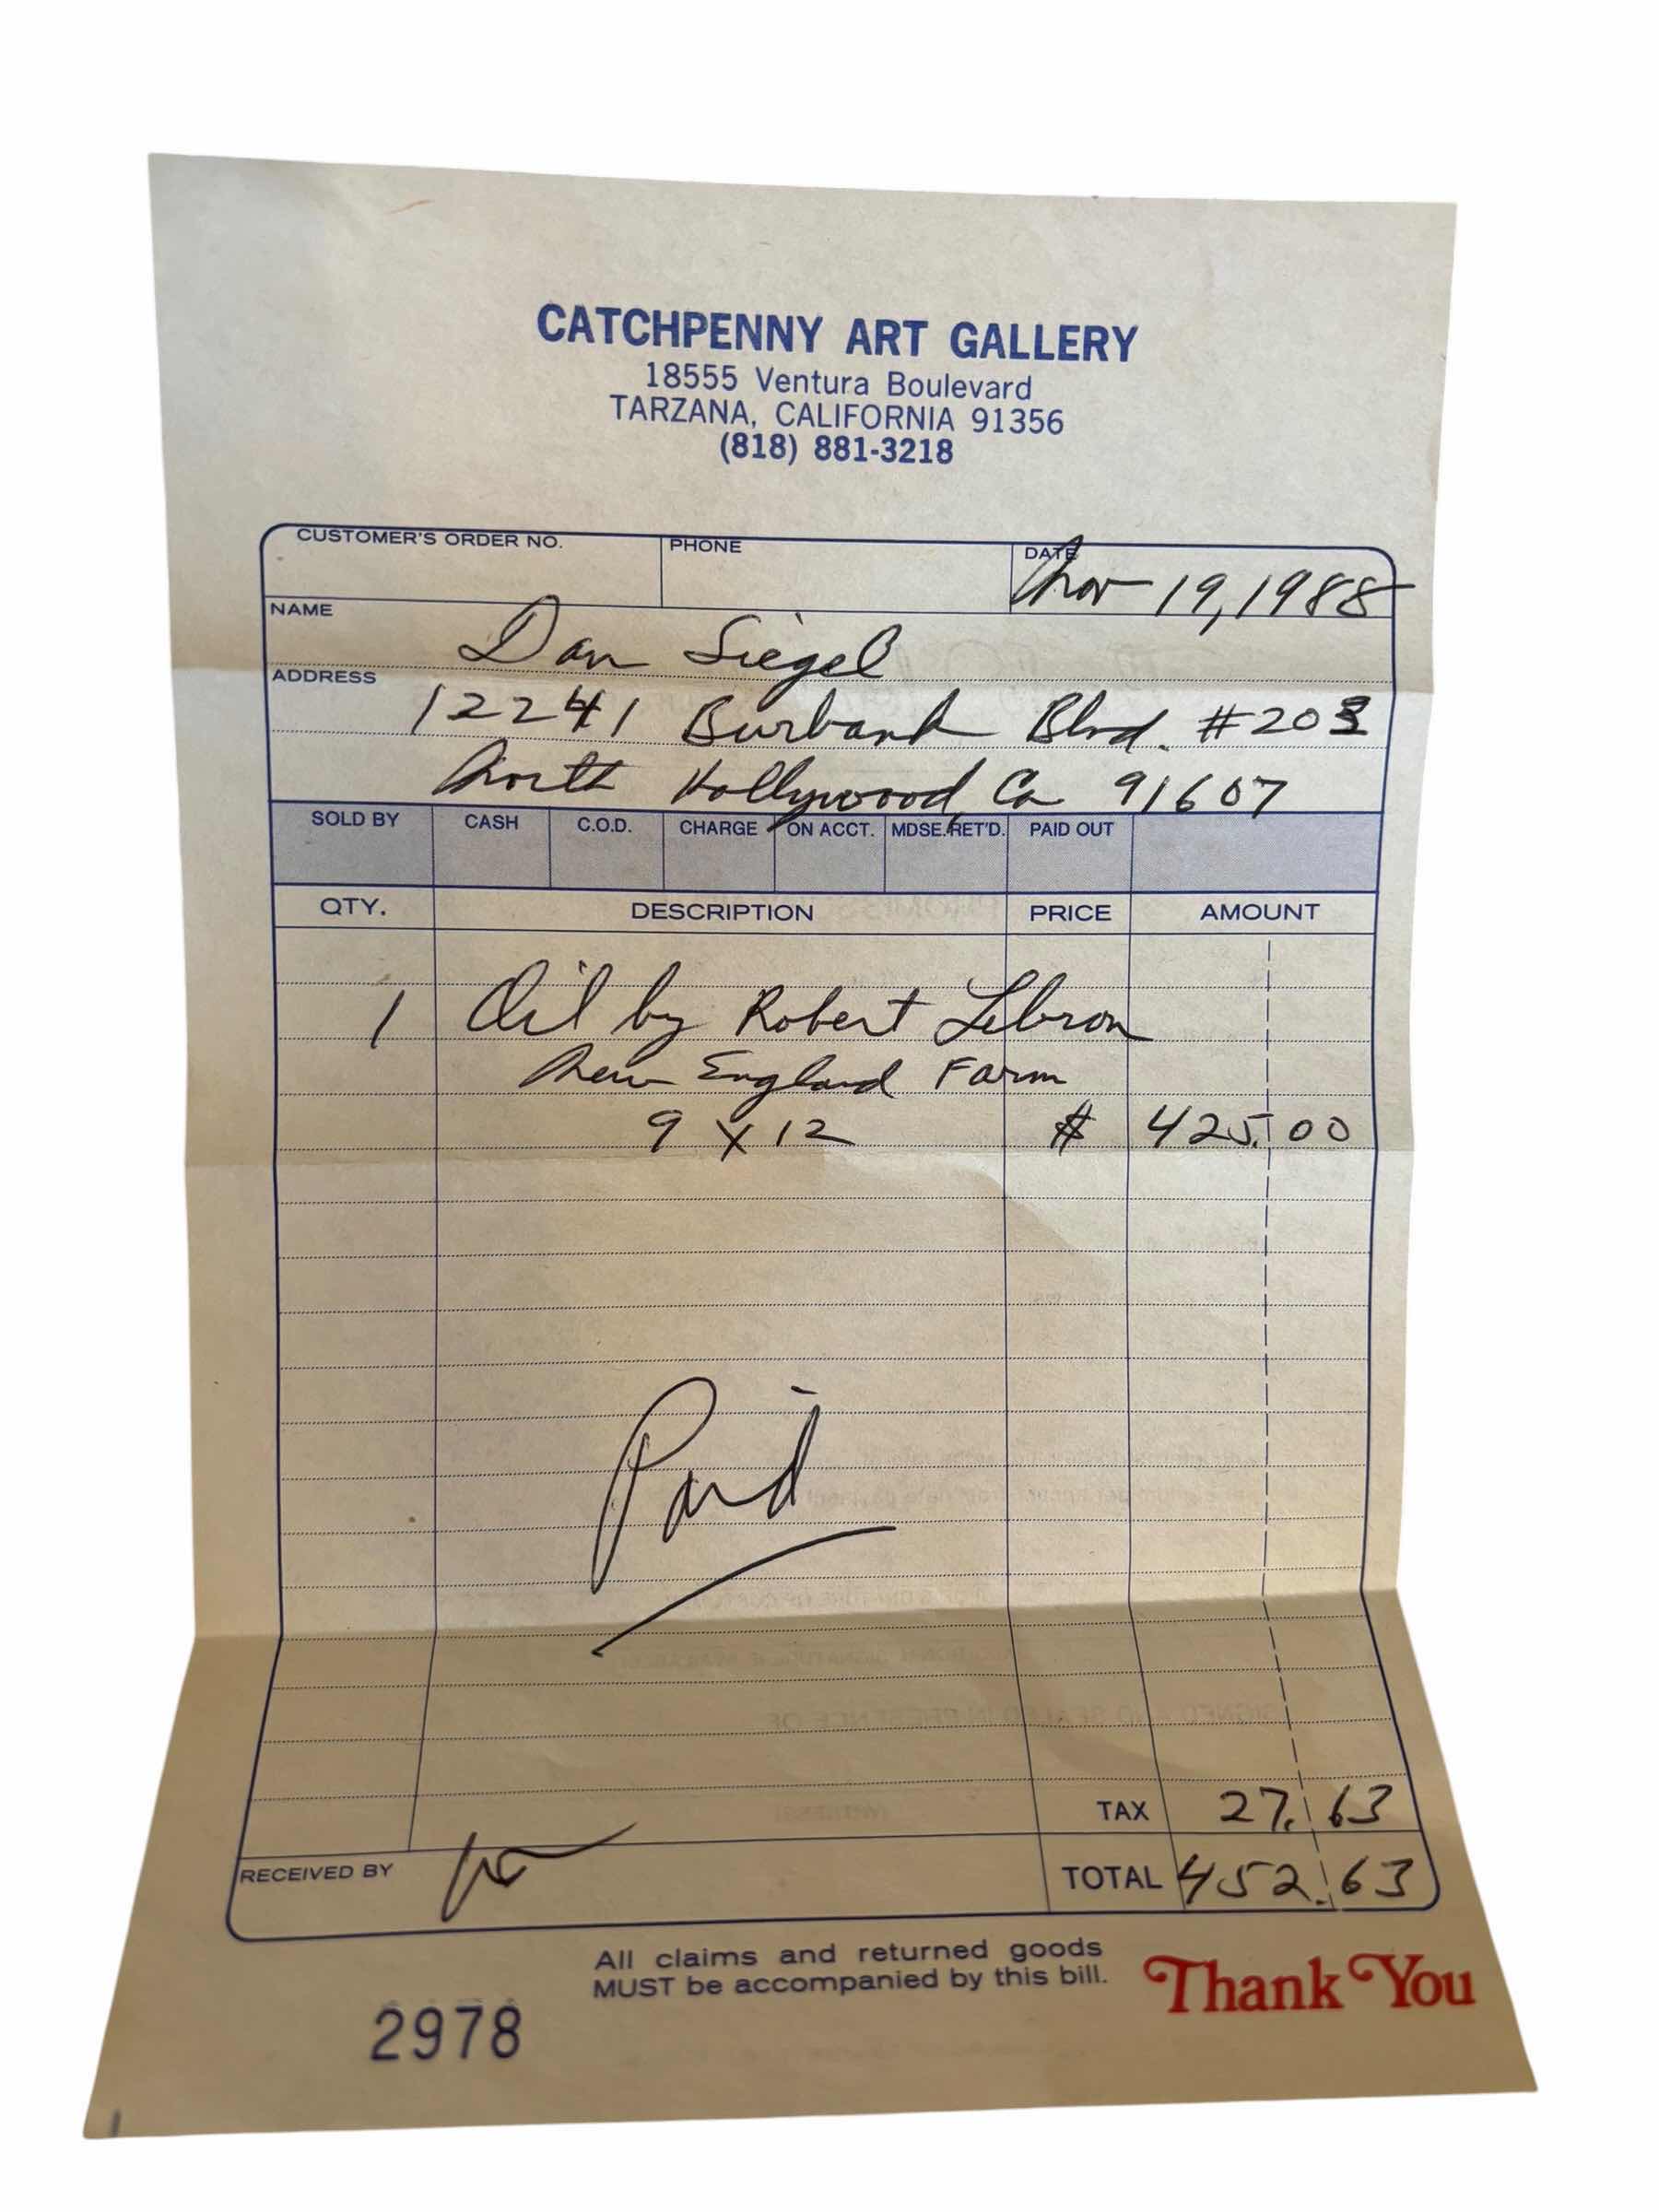 CATCHPENNY ART GALLERY
18555 Ventura Boulevard
TARZANA, CALIFORNIA 91356
(818) 881-3218
CUSTOMER'S ORDER NO. PHONE DATE Nov 19, 1988
NAME Dan Siegel
ADDRESS 12241 Burbank Blvd. #203
North Hollywood, Ca 91607
SOLD BY CASH C.O.D. CHARGE ON ACCT. MDSE. RET'D. PAID OUT
QTY. DESCRIPTION PRICE AMOUNT
1 Oil by Robert Lebron
New England Farm
9 x 12 $ 425.00
Paid
TAX 27.63
RECEIVED BY TOTAL 452.63
All claims and returned goods
MUST be accompanied by this bill.
Thank You
2978